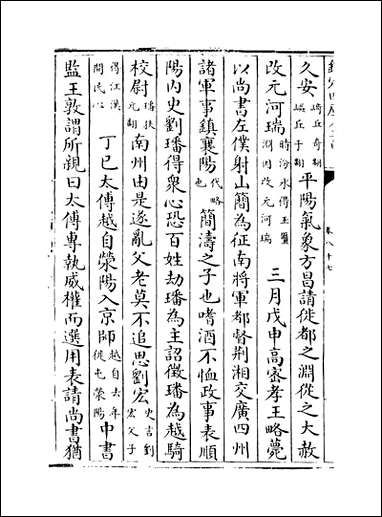 久安崎丘奇翻嶇丘于翻平陽氣象方昌請徙都之淵從之大赦
改元河瑞時汾水得玉璽淵因改元河瑞三月戊申高宻孝王略薨
以尚書左僕射山簡為征南將軍都督荆湘交廣四州
諸軍事鎮襄陽代略也簡濤之子也嗜酒不恤政事表順
陽内史劉璠得衆心恐百姓劫璠為主詔徵璠為越騎
校尉璠扶元翻南州由是遂亂父老莫不追思劉宏史言劉宏父子
得江漢間民心丁巳太傅越自滎陽入京師越自去年徙屯滎陽中書
監王敦謂所親曰太傅專執威權而選用表請尚書猶